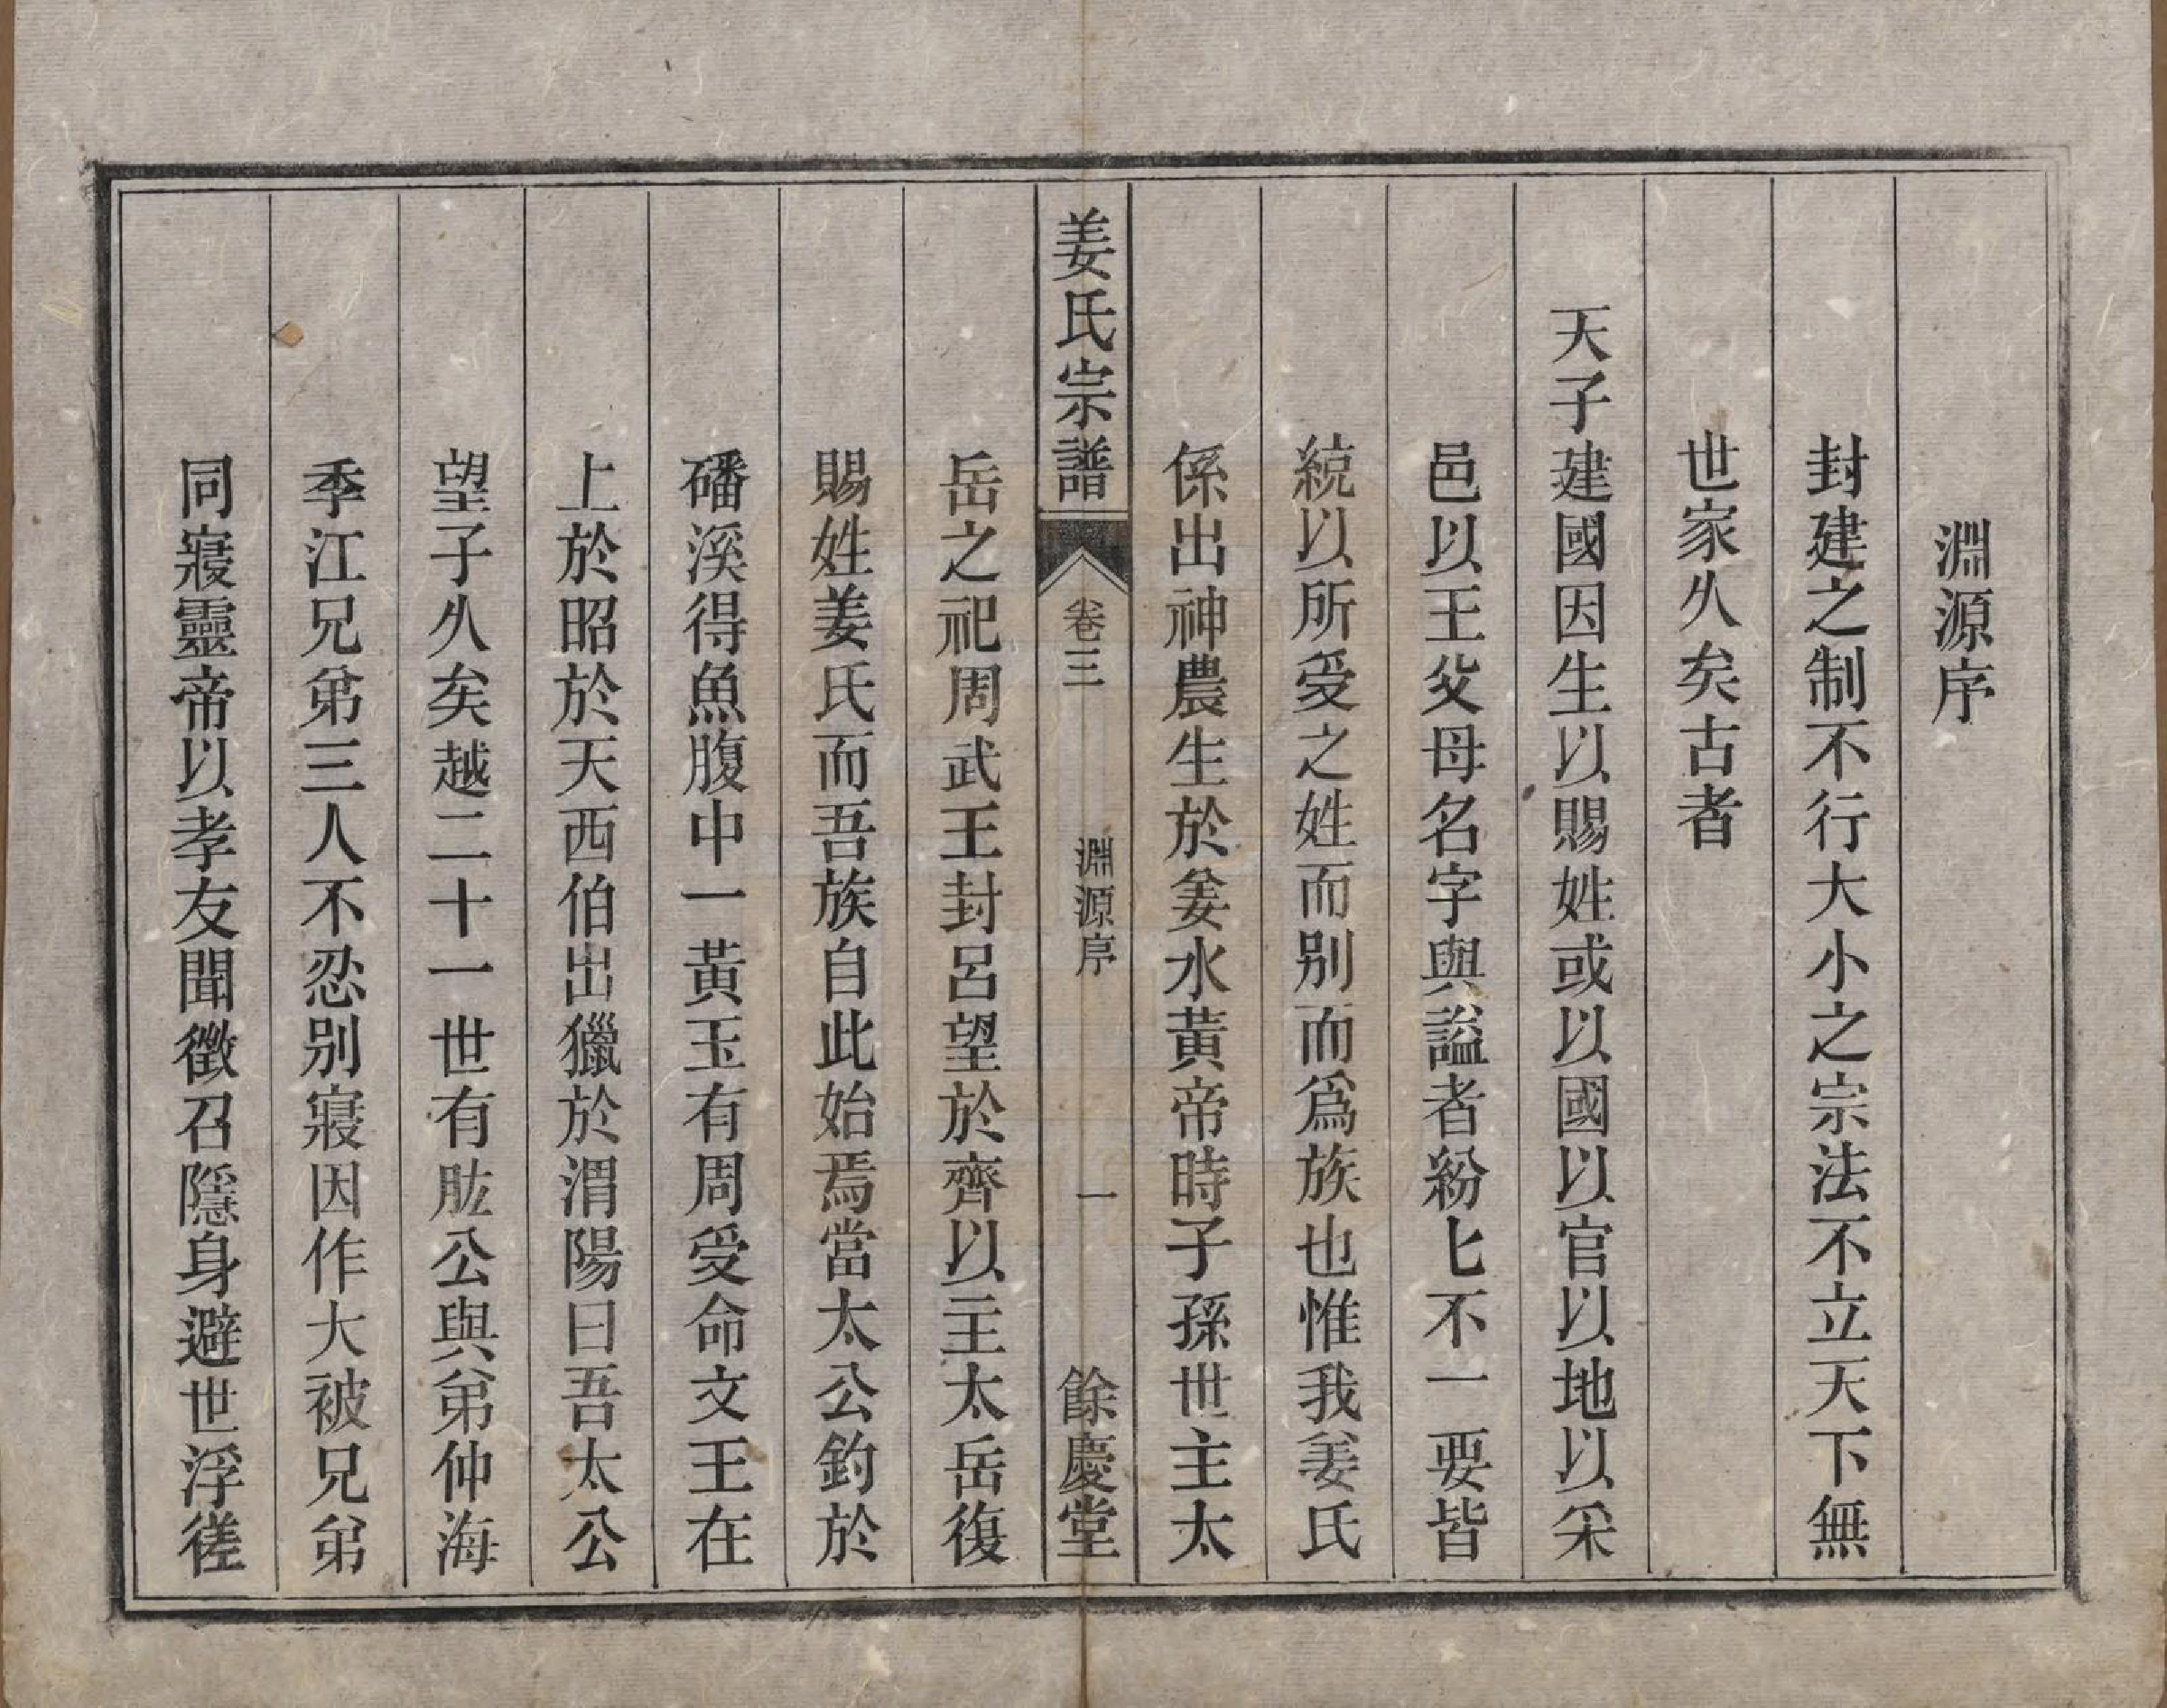 淵源序
封建之制不行大小之宗法不立天下無
世家久矣古者
天子建國因生以賜姓或以國以官以地以采
邑以王父母名字與謚者紛匕不一要皆
統以所受之姓而别而爲族也惟我姜氏
係出神農生於姜水黃帝時子孫世主太
姜氏宗譜 卷三 淵源序 一 餘慶堂
岳之祀周武王封呂望於齊以主太岳復
賜姓姜氏而吾族自此始焉當太公釣於
磻溪得魚腹中一黃玉有周受命文王在
上於昭於天西伯出獵於渭陽曰吾太公
望子久矣越二十一世有肱公與弟仲海
季江兄弟三人不忍别寢因作大被兄弟
同寢靈帝以孝友聞徵召隱身避世浮槎